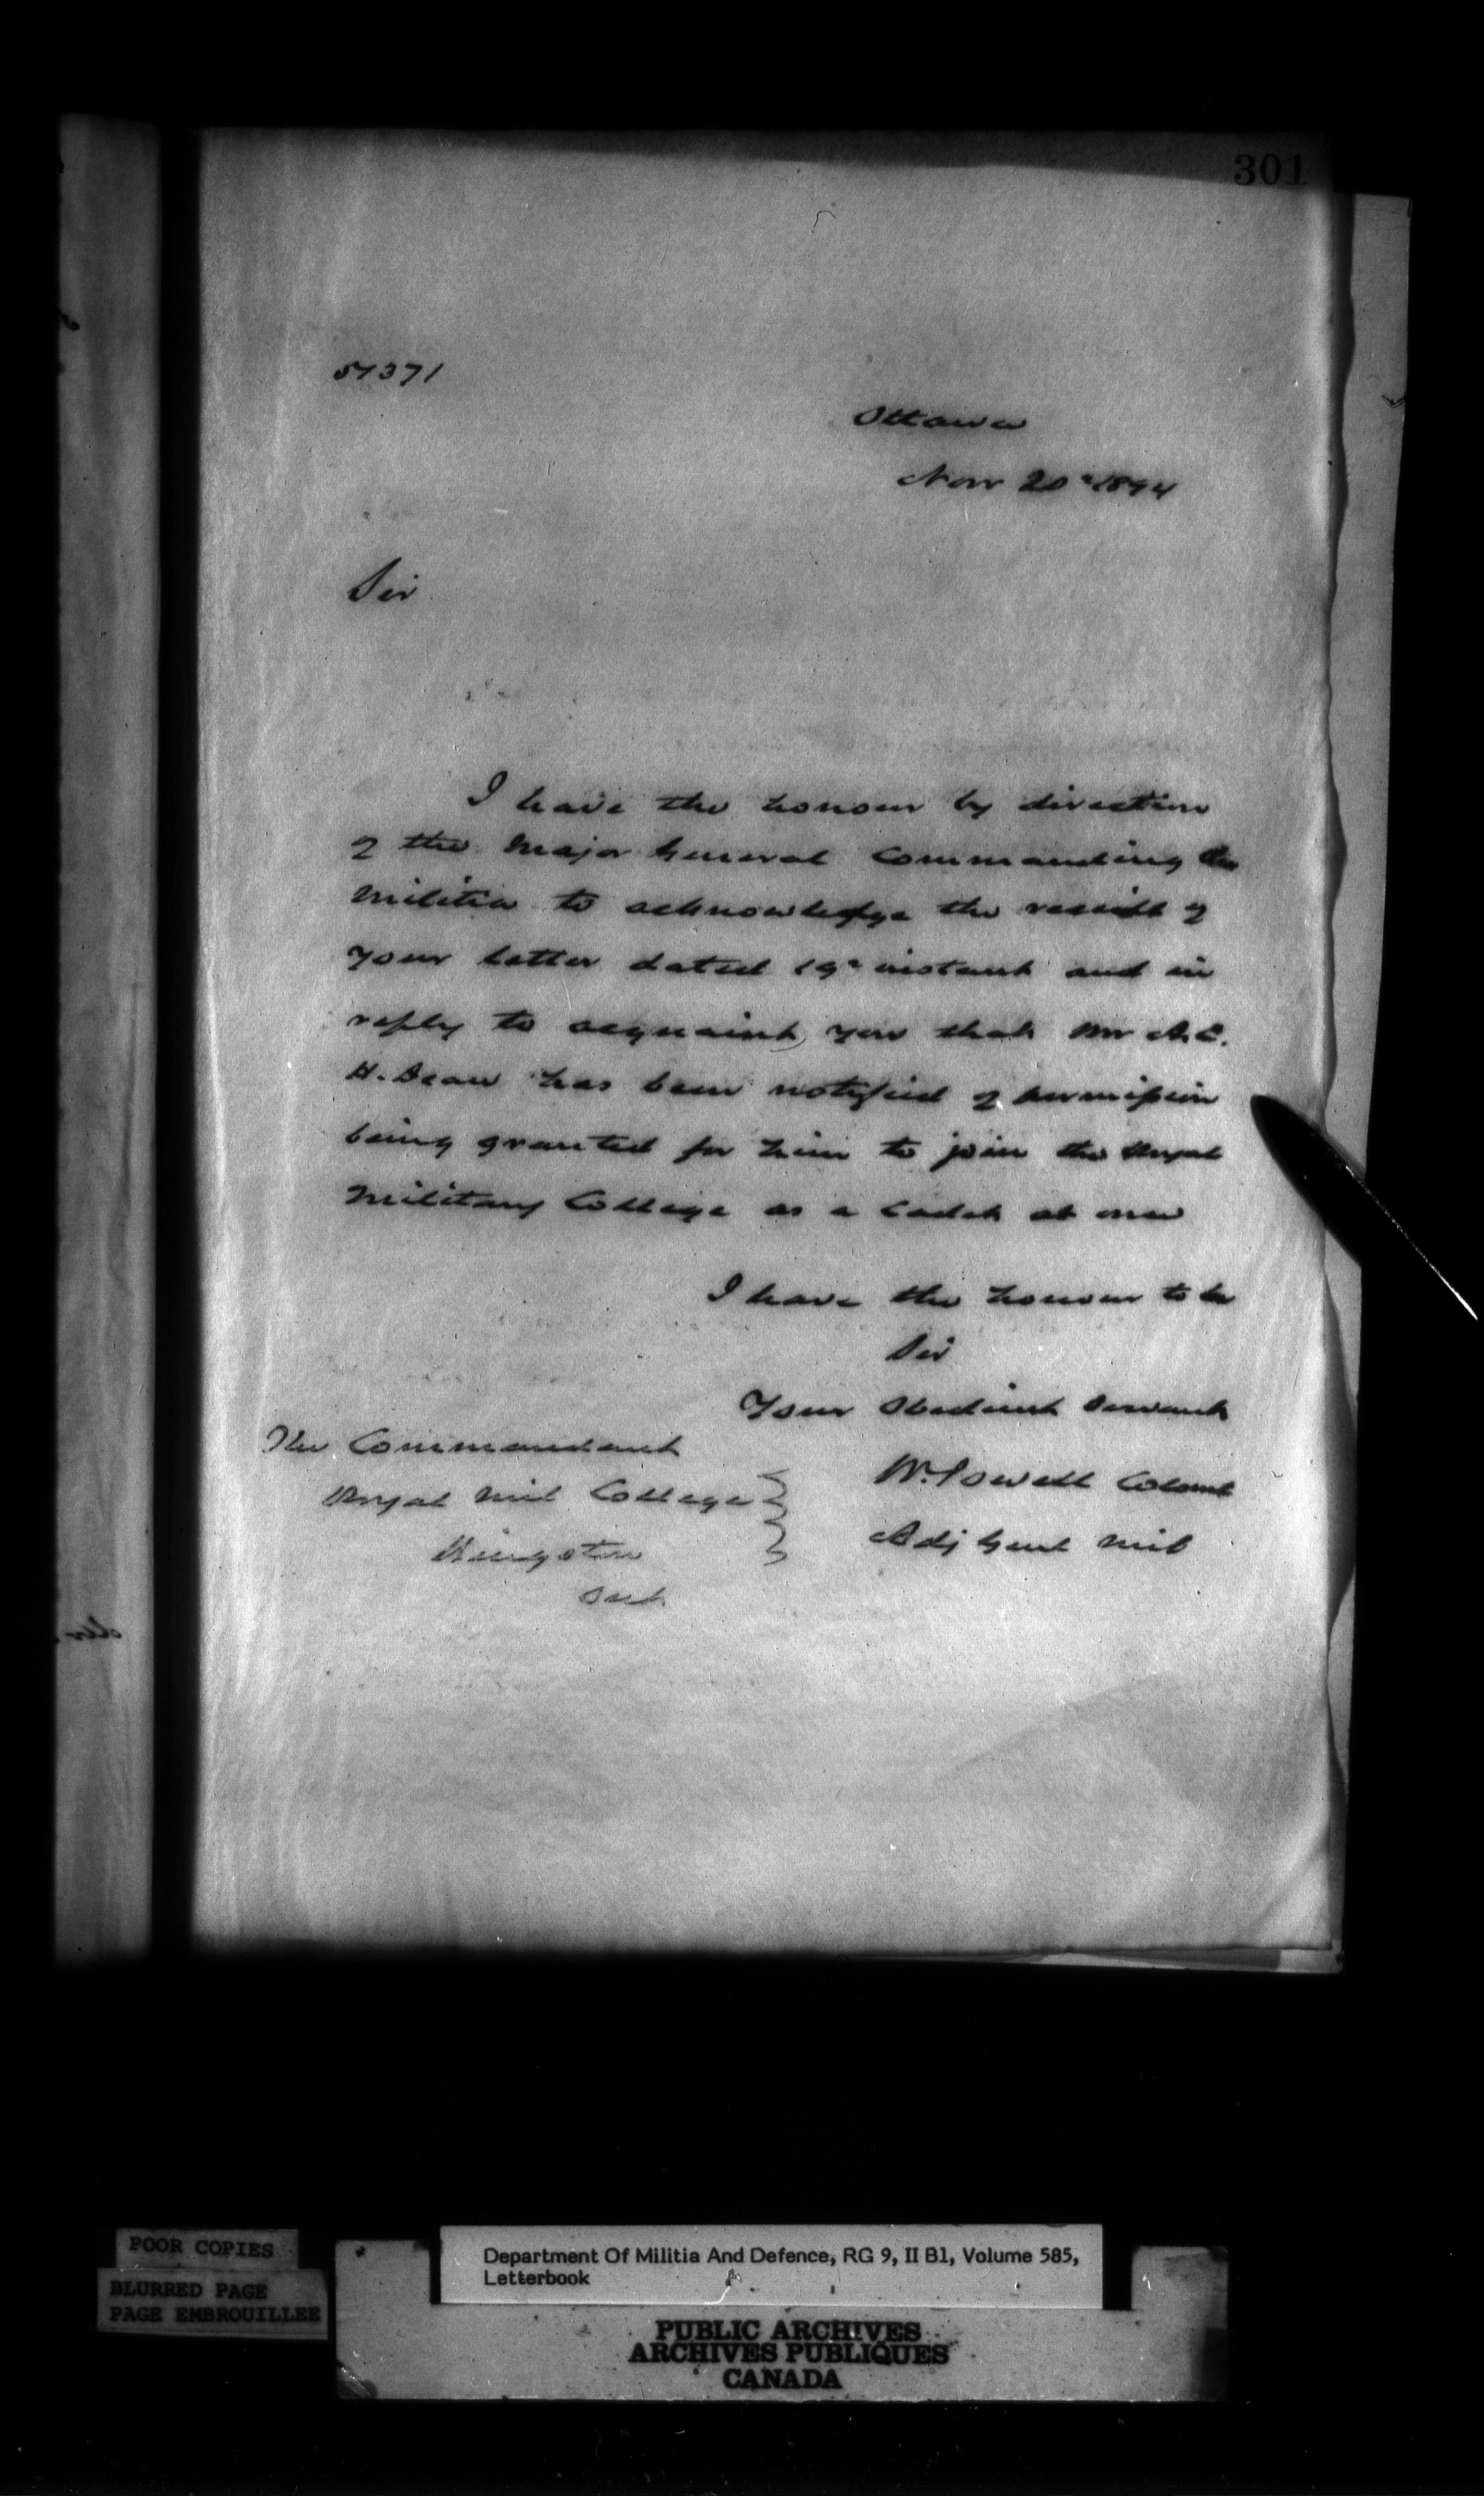 301
57371
Ottawa
Nov 20th 1894
Sir
I have the honour by direction
of the Major General Commanding the
Militia to acknowledge the receipt of
your letter dated 19th instant and in
reply to acquaint you that Mr A.C.
H. has been notified of permission
being granted for him to join the Royal
Military College as a Cadet at once
I have the honour to be
Sir
Your Obedient Servant
The Commandant
Royal Mil College
Kingston
Ont
W. Powell Colonel
Adj Genl Mil
POOR COPIES
BLURRED PAGE
PAGE EMBROUILLEE
Department Of Militia And Defence, RG 9, II B1, Volume 585,
Letterbook
PUBLIC ARCHIVES
ARCHIVES PUBLIQUES
CANADA